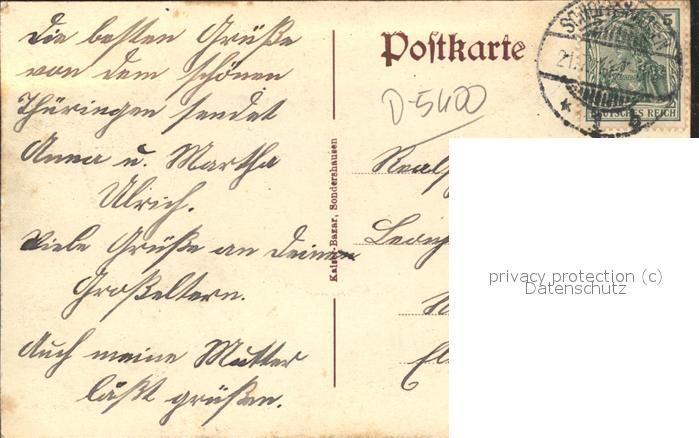 Die besten Grüße
von dem schönen
Thüringen sendet
Anna u. Martha
Ulrich.
Viele Grüße an deinen
Großeltern.
Auch meine Mutter
läßt grüßen.
Kaiser-Bazar, Sondershausen
Postkarte
D-5400
5 5
DEUTSCHES REICH
privacy protection (c)
Datenschutz